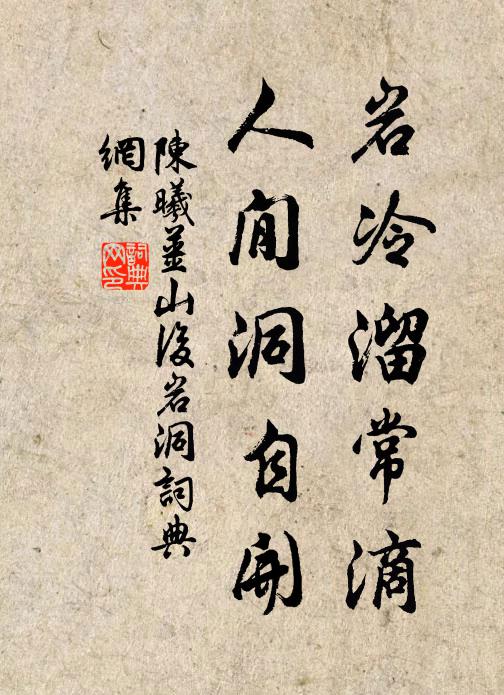 岩冷溜常滴
人閒洞自開
陳曦薑山後岩洞詞典
網集
詞典
网印